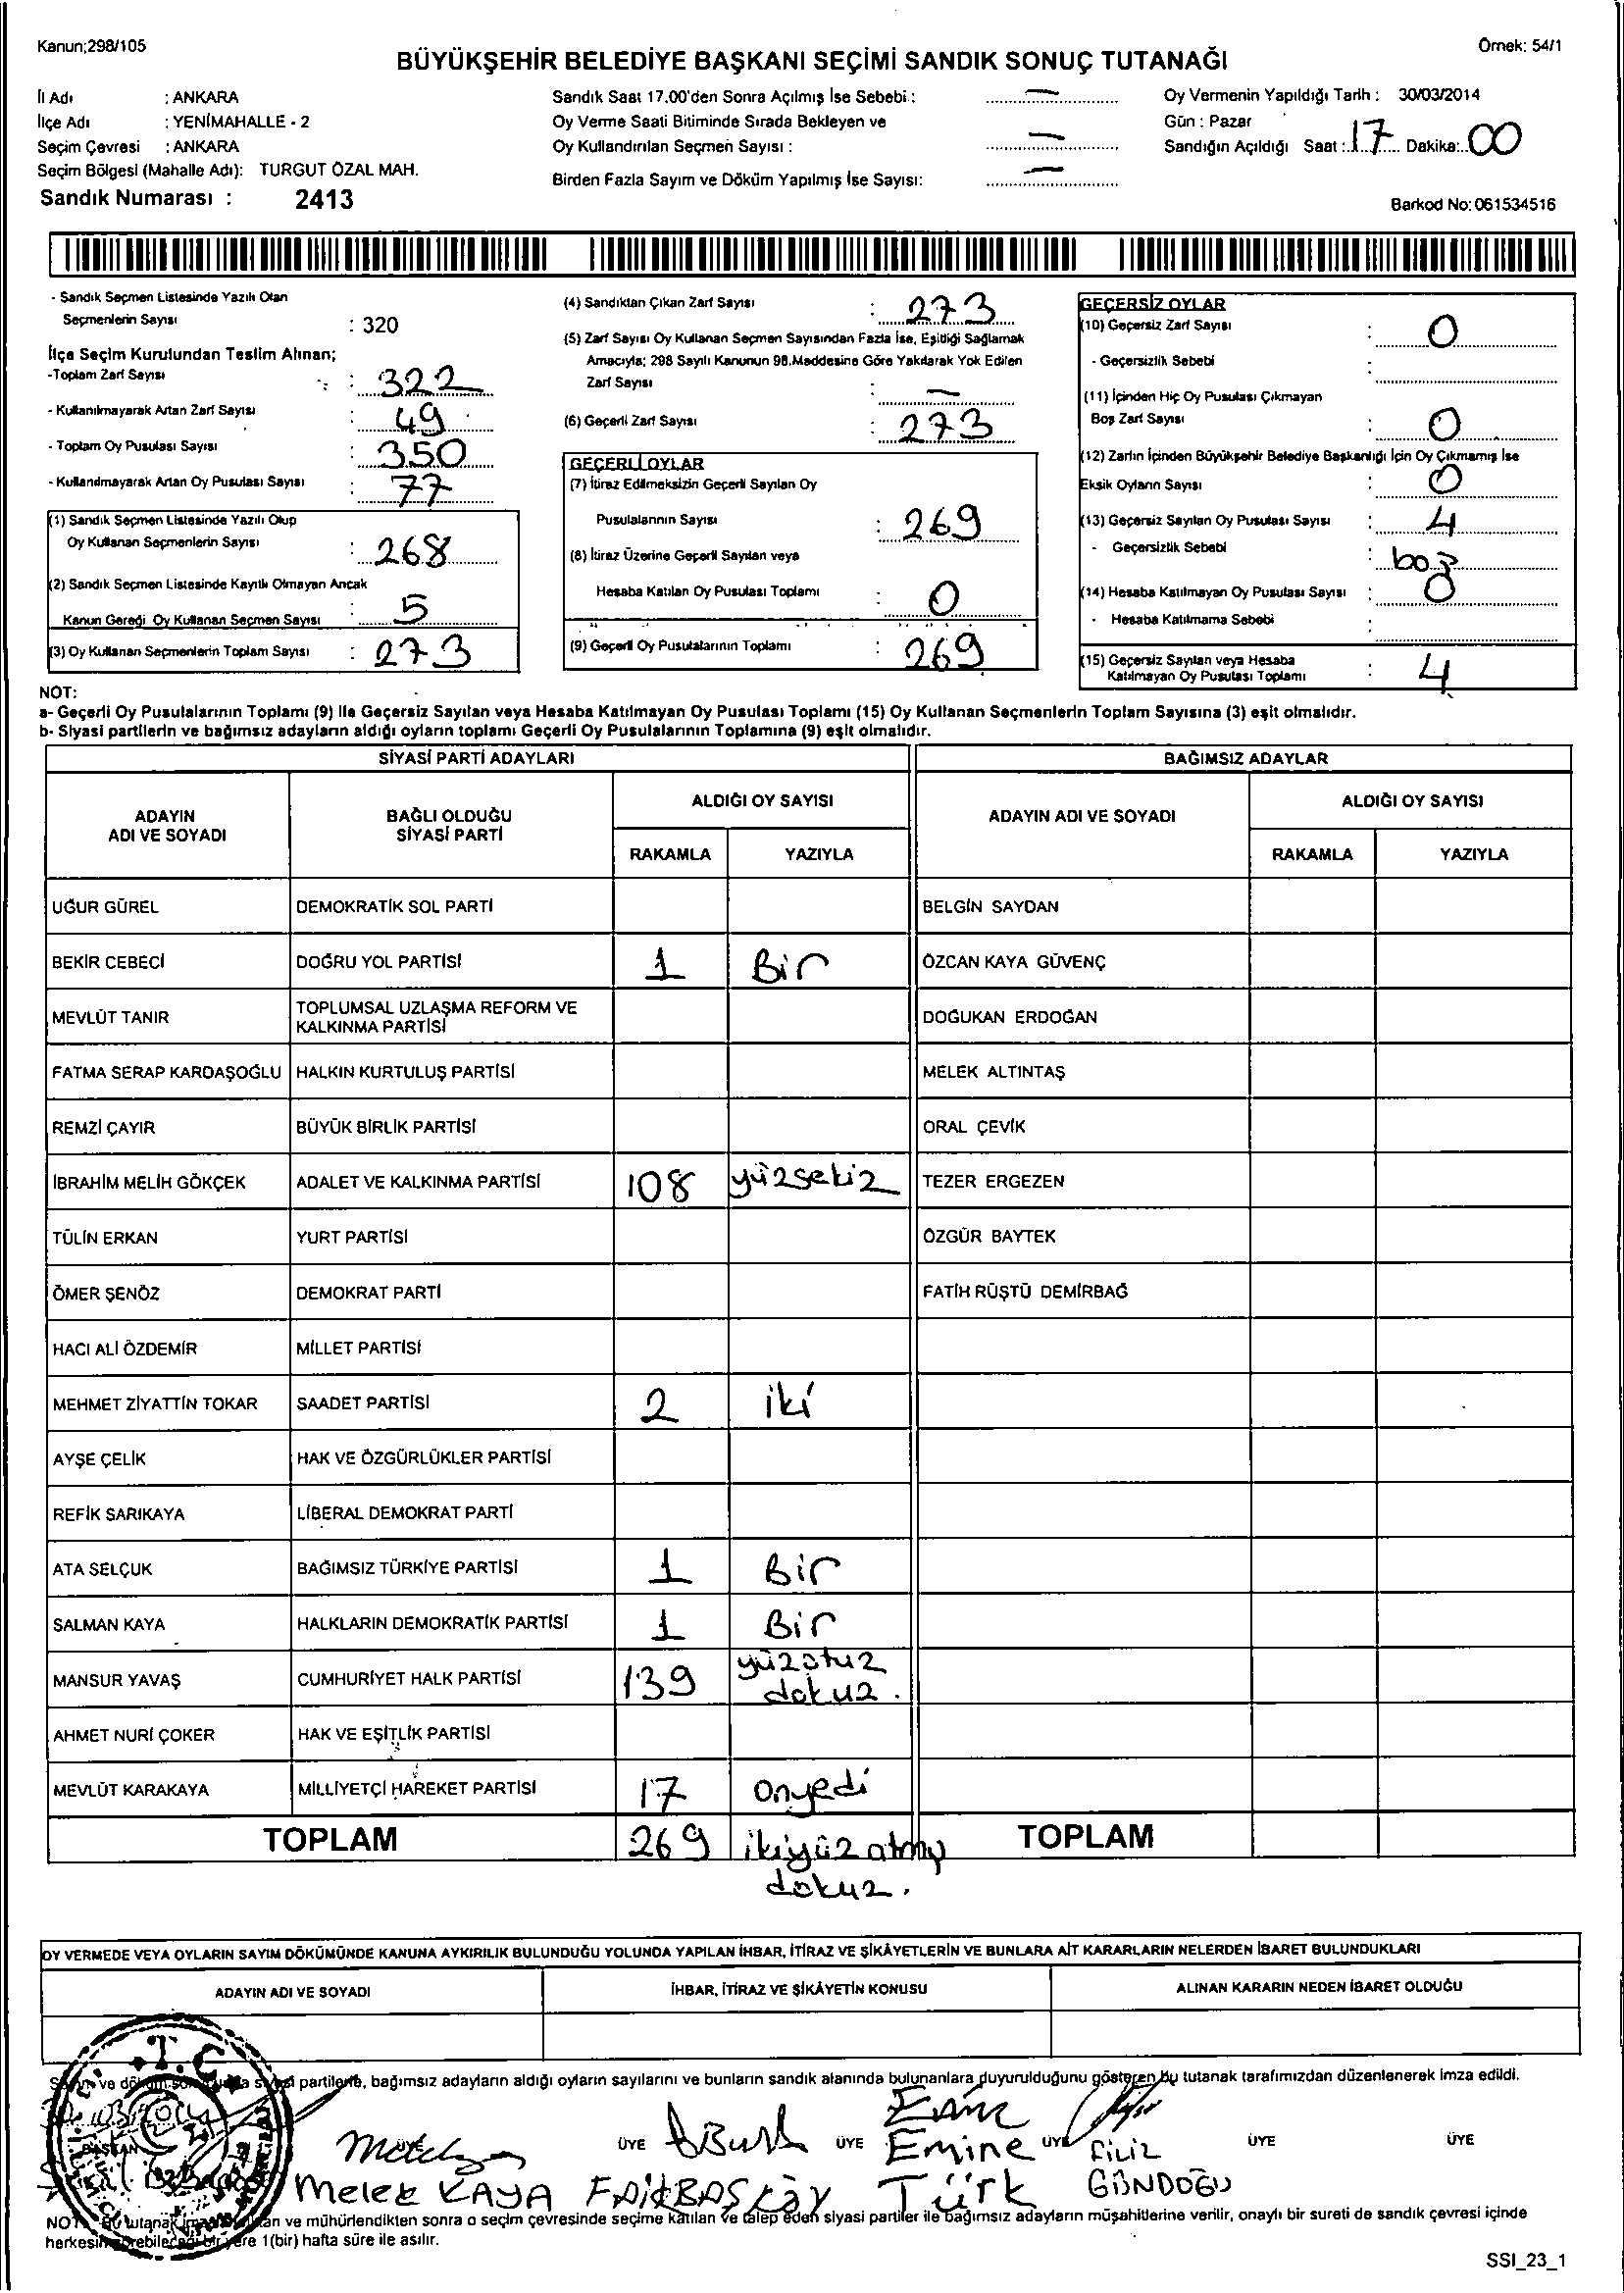 Kanun;298/105
Örnek: 54/1
BÜYÜKŞEHİR BELEDİYE BAŞKANI SEÇİMİ SANDIK SONUÇ TUTANAĞI
İl Adı : ANKARA
İlçe Adı : YENİMAHALLE - 2
Seçim Çevresi : ANKARA
Seçim Bölgesi (Mahalle Adı): TURGUT ÖZAL MAH.
Sandık Numarası : 2413
Sandık Saat 17.00'den Sonra Açılmış İse Sebebi : —
Oy Verme Saati Bitiminde Sırada Bekleyen ve
Oy Kullandırılan Seçmen Sayısı : —
Birden Fazla Sayım ve Döküm Yapılmış İse Sayısı: —
Oy Vermenin Yapıldığı Tarih : 30/03/2014
Gün : Pazar
Sandığın Açıldığı Saat : 17 Dakika: 00
Barkod No: 061534516
- Sandık Seçmen Listesinde Yazılı Olan
Seçmenlerin Sayısı : 320
İlçe Seçim Kurulundan Teslim Alınan;
-Toplam Zarf Sayısı : 322
- Kullanılmayarak Artan Zarf Sayısı : 49
- Toplam Oy Pusulası Sayısı : 350
- Kullanılmayarak Artan Oy Pusulası Sayısı : 77
(1) Sandık Seçmen Listesinde Yazılı Olup
Oy Kullanan Seçmenlerin Sayısı : 268
(2) Sandık Seçmen Listesinde Kayıtlı Olmayan Ancak
Kanun Gereği Oy Kullanan Seçmen Sayısı : 5
(3) Oy Kullanan Seçmenlerin Toplam Sayısı : 273
(4) Sandıktan Çıkan Zarf Sayısı : 273
(5) Zarf Sayısı Oy Kullanan Seçmen Sayısından Fazla İse, Eşitliği Sağlamak
Amacıyla; 298 Sayılı Kanunun 98.Maddesine Göre Yakılarak Yok Edilen
Zarf Sayısı : —
(6) Geçerli Zarf Sayısı : 273
GEÇERLİ OYLAR
(7) İtiraz Edilmeksizin Geçerli Sayılan Oy
Pusulalarının Sayısı : 269
(8) İtiraz Üzerine Geçerli Sayılan veya
Hesaba Katılan Oy Pusulası Toplamı : 0
(9) Geçerli Oy Pusulalarının Toplamı : 269
GEÇERSİZ OYLAR
(10) Geçersiz Zarf Sayısı : 0
- Geçersizlik Sebebi :
(11) İçinden Hiç Oy Pusulası Çıkmayan
Boş Zarf Sayısı : 0
(12) Zarfın İçinden Büyükşehir Belediye Başkanlığı İçin Oy Çıkmamış İse
Eksik Oyların Sayısı : 0
(13) Geçersiz Sayılan Oy Pusulası Sayısı : 4
- Geçersizlik Sebebi : boş
(14) Hesaba Katılmayan Oy Pusulası Sayısı : 0
- Hesaba Katılmama Sebebi :
(15) Geçersiz Sayılan veya Hesaba
Katılmayan Oy Pusulası Toplamı : 4
NOT:
a- Geçerli Oy Pusulalarının Toplamı (9) ile Geçersiz Sayılan veya Hesaba Katılmayan Oy Pusulası Toplamı (15) Oy Kullanan Seçmenlerin Toplam Sayısına (3) eşit olmalıdır.
b- Siyasi partilerin ve bağımsız adayların aldığı oyların toplamı Geçerli Oy Pusulalarının Toplamına (9) eşit olmalıdır.
SİYASİ PARTİ ADAYLARI BAĞIMSIZ ADAYLAR
ADAYIN ADI VE SOYADI BAĞLI OLDUĞU SİYASİ PARTİ ALDIĞI OY SAYISI ADAYIN ADI VE SOYADI ALDIĞI OY SAYISI
RAKAMLA YAZIYLA RAKAMLA YAZIYLA
UĞUR GÜREL DEMOKRATİK SOL PARTİ BELGİN SAYDAN
BEKİR CEBECİ DOĞRU YOL PARTİSİ 1 Bir ÖZCAN KAYA GÜVENÇ
MEVLÜT TANIR TOPLUMSAL UZLAŞMA REFORM VE KALKINMA PARTİSİ DOĞUKAN ERDOĞAN
FATMA SERAP KARDAŞOĞLU HALKIN KURTULUŞ PARTİSİ MELEK ALTINTAŞ
REMZİ ÇAYIR BÜYÜK BİRLİK PARTİSİ ORAL ÇEVİK
İBRAHİM MELİH GÖKÇEK ADALET VE KALKINMA PARTİSİ 108 yüzsekiz TEZER ERGEZEN
TÜLİN ERKAN YURT PARTİSİ ÖZGÜR BAYTEK
ÖMER ŞENÖZ DEMOKRAT PARTİ FATİH RÜŞTÜ DEMİRBAĞ
HACI ALİ ÖZDEMİR MİLLET PARTİSİ
MEHMET ZİYATTİN TOKAR SAADET PARTİSİ 2 iki
AYŞE ÇELİK HAK VE ÖZGÜRLÜKLER PARTİSİ
REFİK SARIKAYA LİBERAL DEMOKRAT PARTİ
ATA SELÇUK BAĞIMSIZ TÜRKİYE PARTİSİ 1 Bir
SALMAN KAYA HALKLARIN DEMOKRATİK PARTİSİ 1 Bir
MANSUR YAVAŞ CUMHURİYET HALK PARTİSİ 139 yüzotuz dokuz.
AHMET NURİ ÇOKER HAK VE EŞİTLİK PARTİSİ
MEVLÜT KARAKAYA MİLLİYETÇİ HAREKET PARTİSİ 17 onyedi
TOPLAM 269 ikiyüz atmış dokuz. TOPLAM
OY VERMEDE VEYA OYLARIN SAYIM DÖKÜMÜNDE KANUNA AYKIRILIK BULUNDUĞU YOLUNDA YAPILAN İHBAR, İTİRAZ VE ŞİKÂYETLERİN VE BUNLARA AİT KARARLARIN NELERDEN İBARET BULUNDUKLARI
ADAYIN ADI VE SOYADI İHBAR, İTİRAZ VE ŞİKÂYETİN KONUSU ALINAN KARARIN NEDEN İBARET OLDUĞU
T.C.
Sayım ve döküm sonucunda siyasi partilerin, bağımsız adayların aldığı oyların sayılarını ve bunların sandık alanında bulunanlara duyurulduğunu gösteren bu tutanak tarafımızdan düzenlenerek imza edildi.
BAŞKAN ÜYE ÜYE ÜYE ÜYE ÜYE
Melek KAYA FAİKBAŞKÖY Emine Türk Filiz GÜNDOĞU
NOT: Bu tutanak ve mühürlendikten sonra o seçim çevresinde seçime katılan ve talep eden siyasi partiler ile bağımsız adayların müşahitlerine verilir, onaylı bir sureti de sandık çevresi içinde
herkesin görebileceği bir yere 1(bir) hafta süre ile asılır.
SSI_23_1